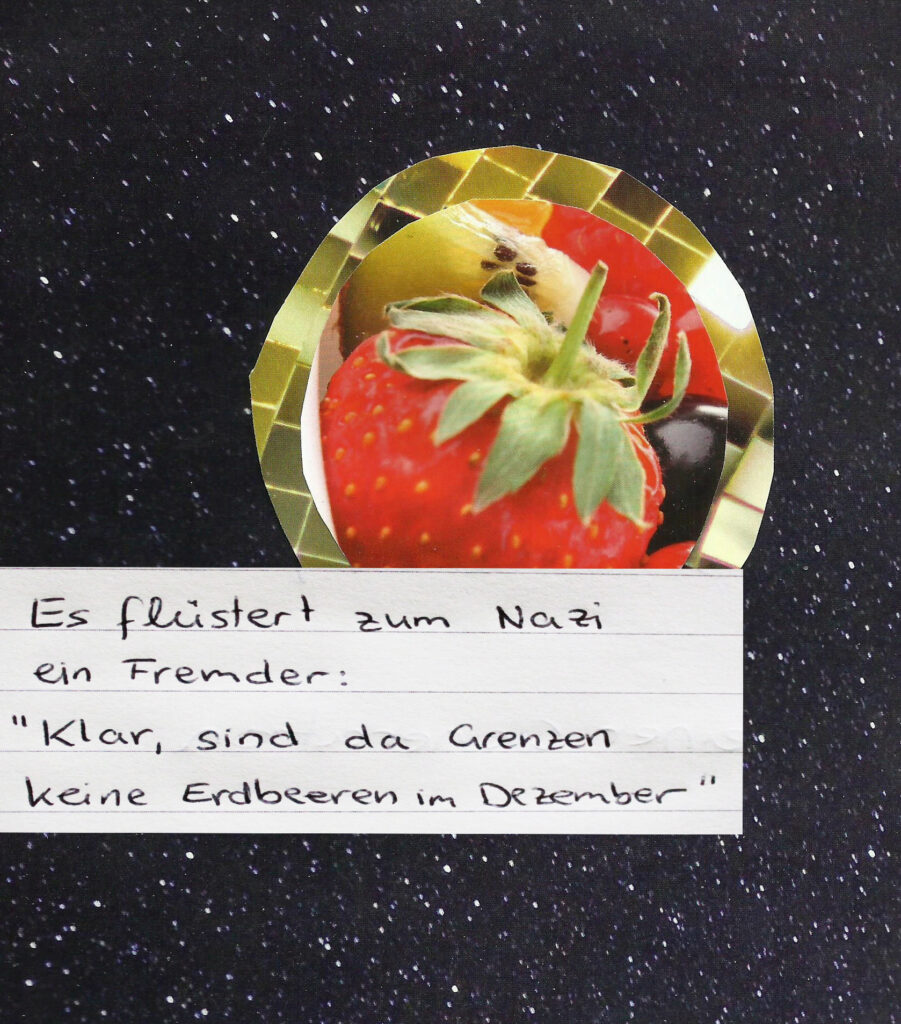 Es flüstert zum Nazi
ein Fremder:
"Klar, sind da Grenzen
keine Erdbeeren im Dezember"